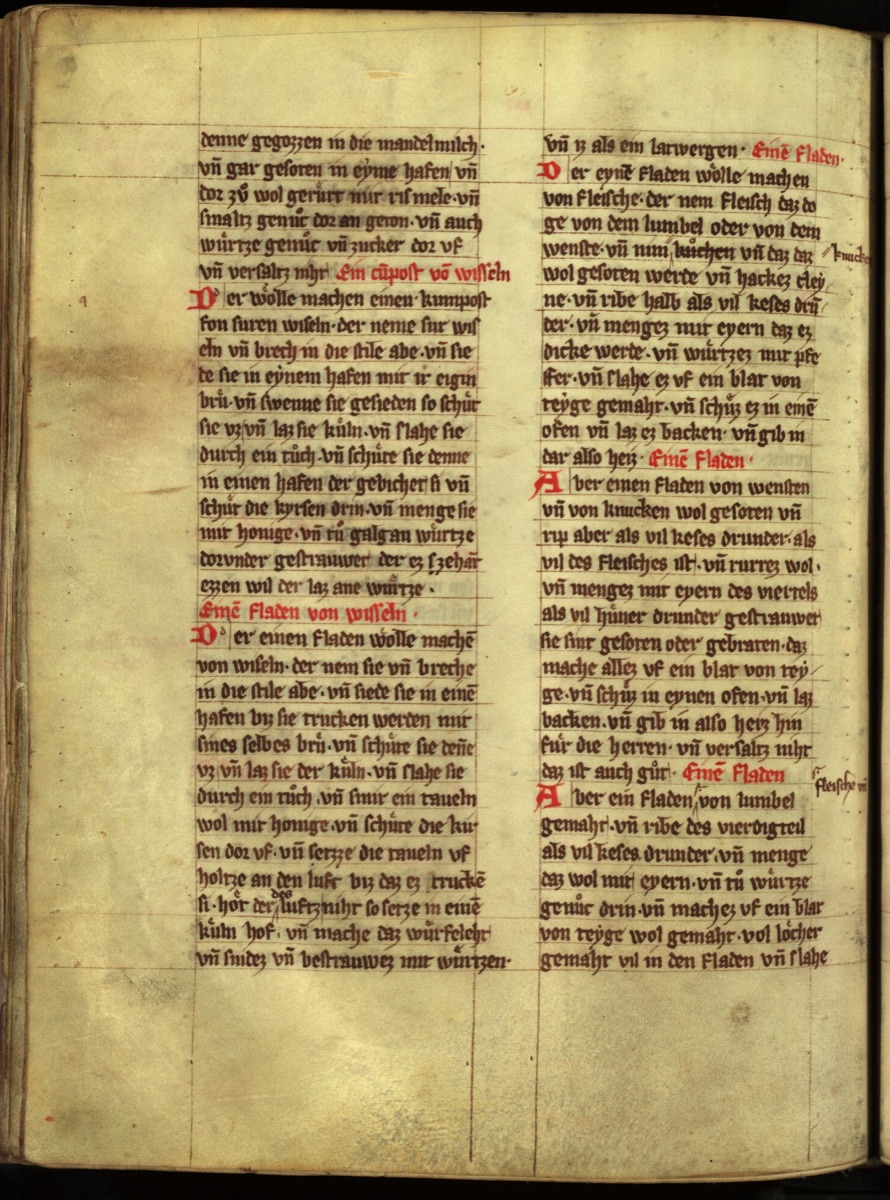 denne gegozzen in die mandelmilch·
vn̄ gar gesoten in eyme hafen vn̄
dor zuͦ wol gerürt mit ris mele· vn̄
smaltz genuͦc dor an geton· vn̄ auch
würtze genuͦc vn̄ zucker dor vf
vn̄ versaltz niht Ein cūpost vō wisseln
Der wölle machen einen kumpost
fon suren wiseln· der neme sur wis
eln vn̄ brech in die stile abe· vn̄ sie
de sie in eynem hafen mit ir eigin
brü· vn̄ swenne sie gesieden so schüt
sie vz vn̄ laz sie küln· vn̄ slahe sie
durch ein tuͦch· vn̄ schüte sie denne
in einen hafen der gebichet si vn̄
schüt die kyrsen drin· vn̄ menge sie
mit honige· vn̄ tuͦ galgan würtze
dorvnder gestrauwet der ez szehāt
ezzen wil der laz ane würtze·
Einē fladen von wisseln·
Der einen fladen wölle machē
von wiseln· der nem sie vn̄ breche
in die stile abe· vn̄ siede sie in einē
hafen biz sie trucken werden mit
sines selbes brü· vn̄ schüte sie deñe
vz vn̄ laz sie der küln· vn̄ slahe sie
durch ein tuͦch· vn̄ smir ein taueln
wol mit honige· vn̄ schüte die kir
sen dor vf· vn̄ setzze die taueln vf
holtze an den luft biz daz ez truckē
si· hot der des luftz niht so setze in einē
küln hof· vn̄ mache daz würfeleht
vn̄ snidez vn̄ bestrauwez mit würtzen·
vn̄ iz als ein latwergen· Einē fladen·
Der eynē fladen wölle machen
von fleische· der nem fleisch daz do
ge von dem lumbel oder von dem
wenste· vn̄ nim kuͤchen vn̄ daz daz knucken
wol gesoten werde vn̄ hackez cley
ne· vn̄ ribe halb als vil keses drū
der· vn̄ mengez mit eyern daz ez
dicke werde· vn̄ würtzez mit pfe
ffer· vn̄ slahe ez vf ein blat von
teyge gemaht· vn̄ schüz ez in einē
ofen vn̄ laz ez backen· vn̄ gib in
dar also heiz· Einē fladen·
Aber einen fladen von wensten
vn̄ von knucken wol gesoten vn̄
rip aber als vil keses drunder· als
vil des fleisches ist· vn̄ rurrez wol·
vn̄ mengez mit eyern des viertels
als vil hüner drunder gestrauwet
sie sint gesoten oder gebraten· daz
mache allez vf ein blat von tey
ge· vn̄ schüz in eynen ofen· vn̄ laz
backen· vn̄ gib in also heiz hin
für die herren· vn̄ versaltz niht
daz ist auch guͦt· Einē fladen
Aber ein fladen von lumbel fleische vn̄
gemaht· vn̄ ribe des vierdigteil
als vil keses drunder· vn̄ menge
daz wol mit eyern· vn̄ tuͦ würtze
genuͦc drin· vn̄ machez vf ein blat
von teyge wol gemaht· vol löcher
gemaht vil in den fladen vn̄ slahe